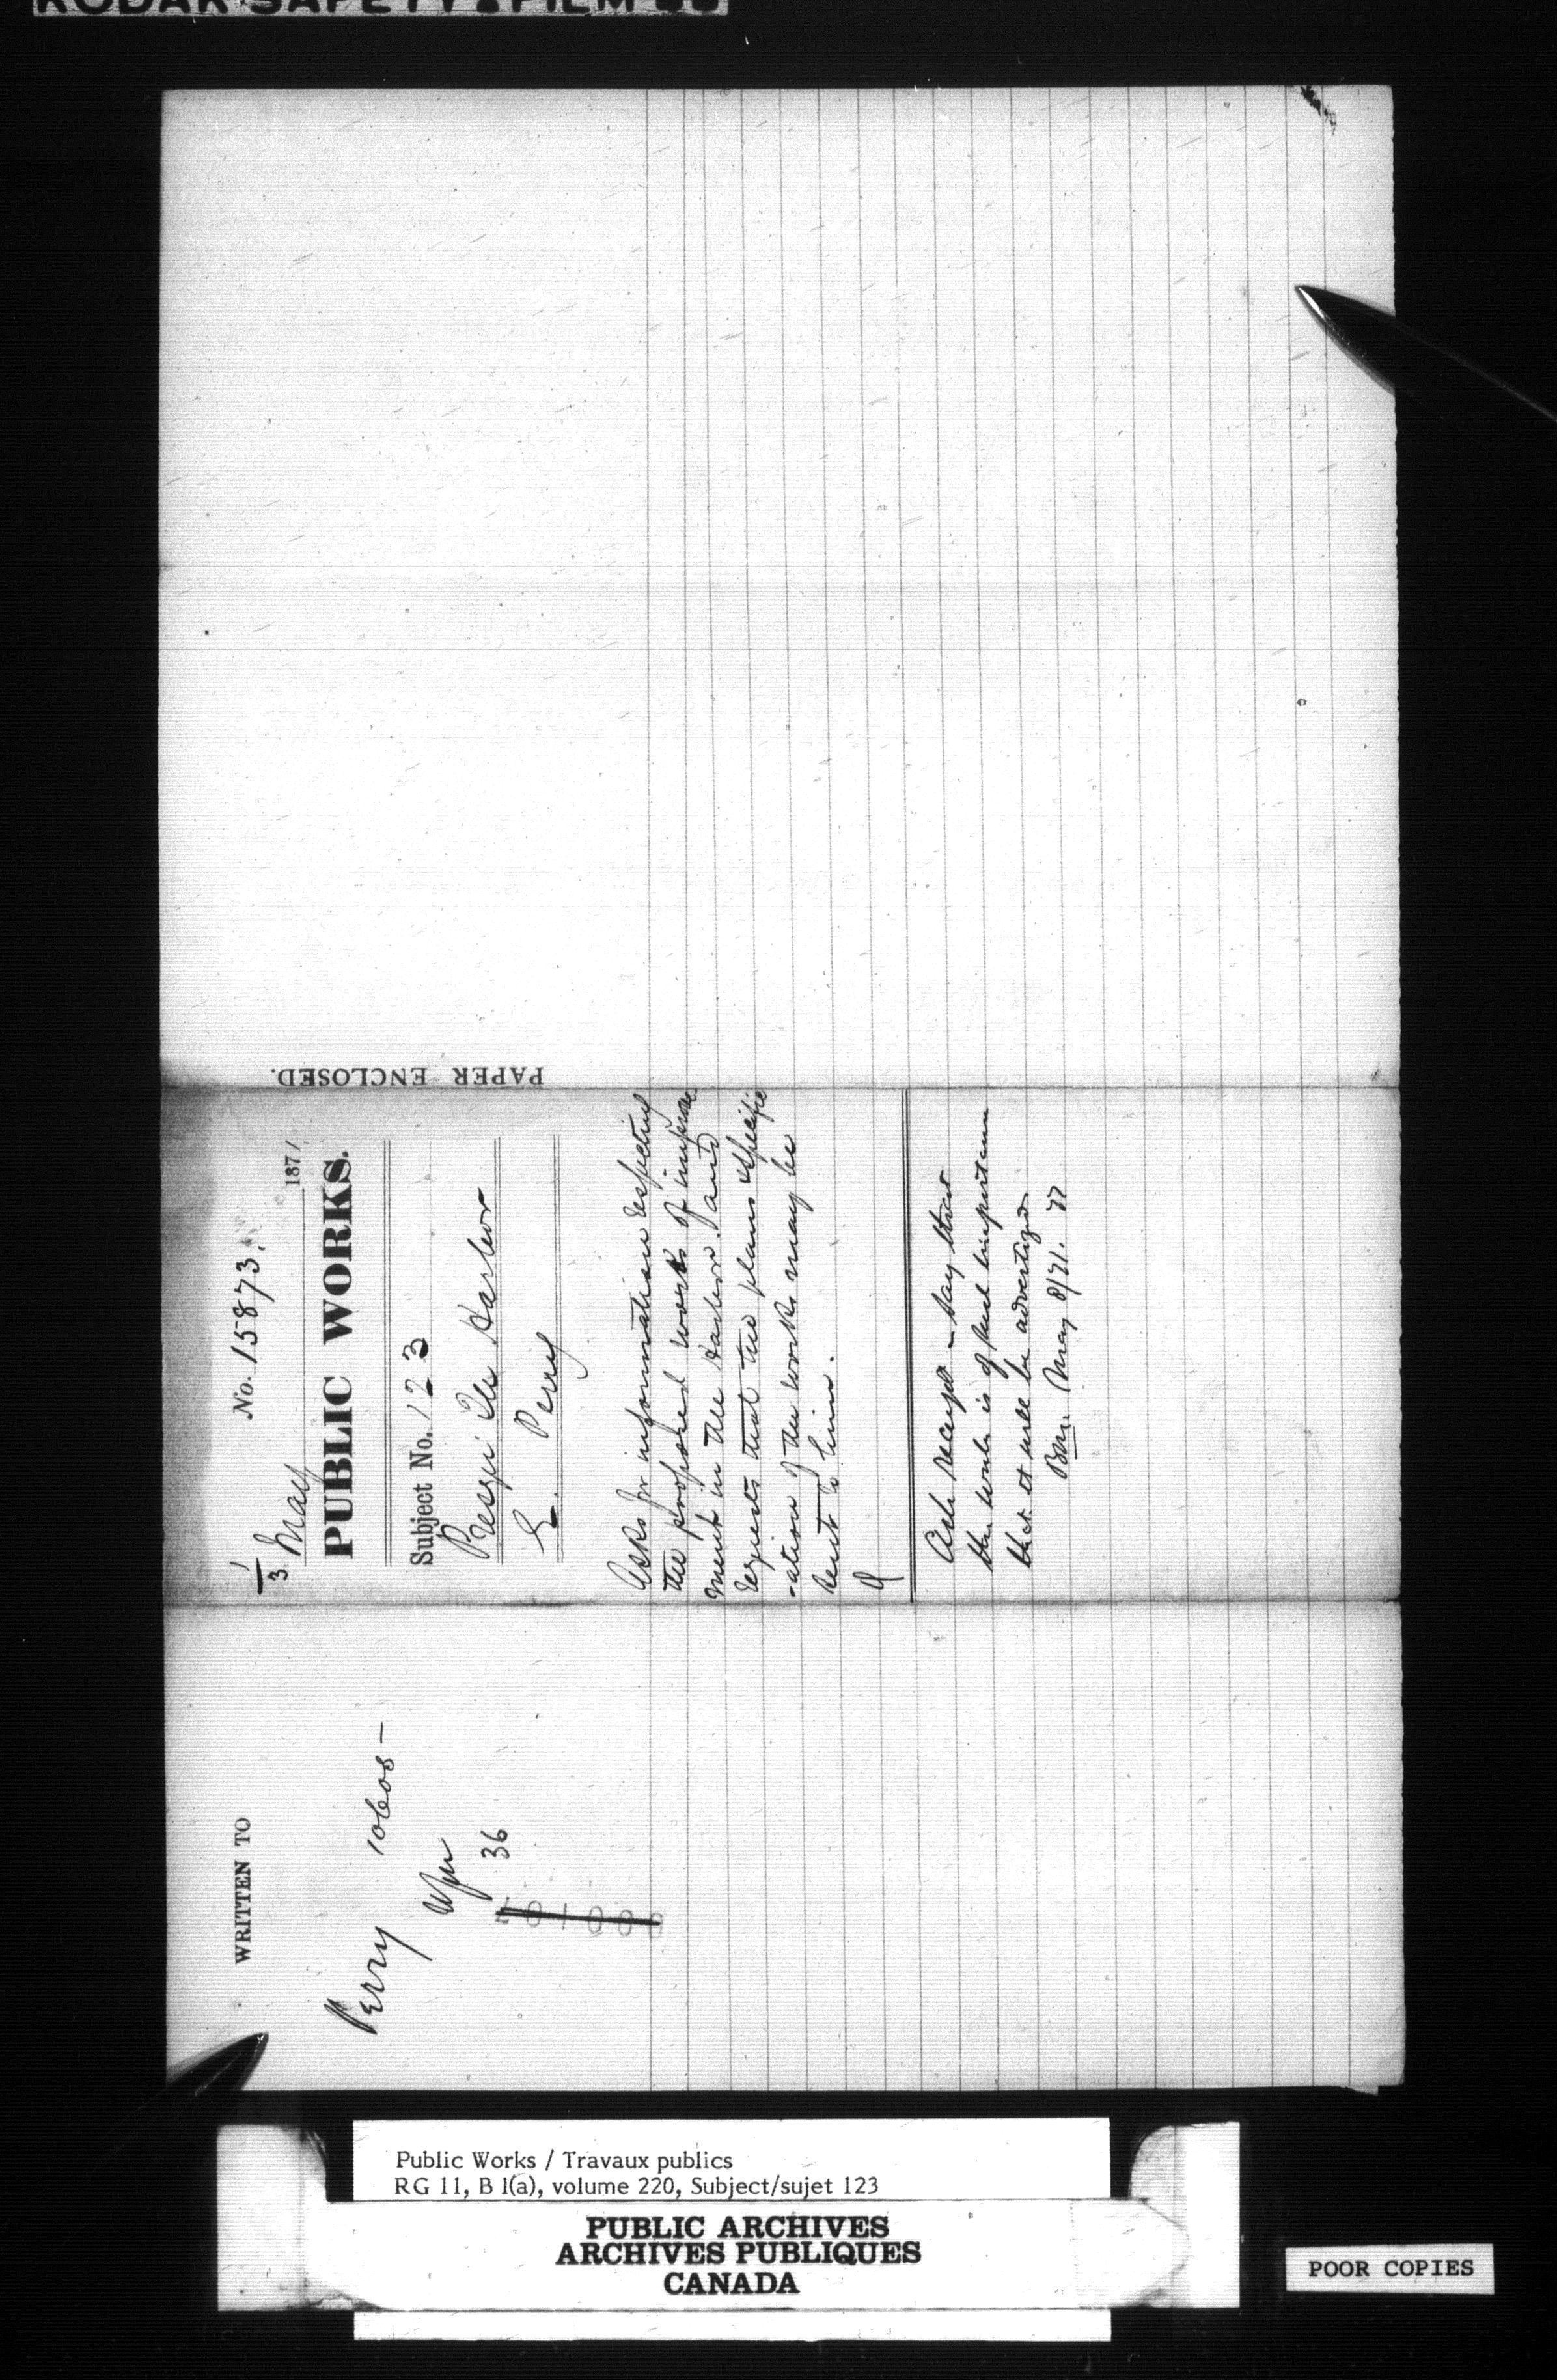 KODAK SAFETY FILM
No. 15873.
1/3 May 1871
PUBLIC WORKS.
Subject No. 123
Presqu' Ile Harbor
E. Perry
Asks for information respecting
the proposed works of improve
ment in the Harbor and
requests that the plans & specific
-ation of the works may be
sent to him.
Ack receipt - Say that
the work is of such importance
that it will be advertized
May 8/71.
PAPER ENCLOSED.
WRITTEN TO
Perry 10608 -
36
Public Works / Travaux publics
RG 11, B 1(a), volume 220, Subject/sujet 123
PUBLIC ARCHIVES
ARCHIVES PUBLIQUES
CANADA
POOR COPIES